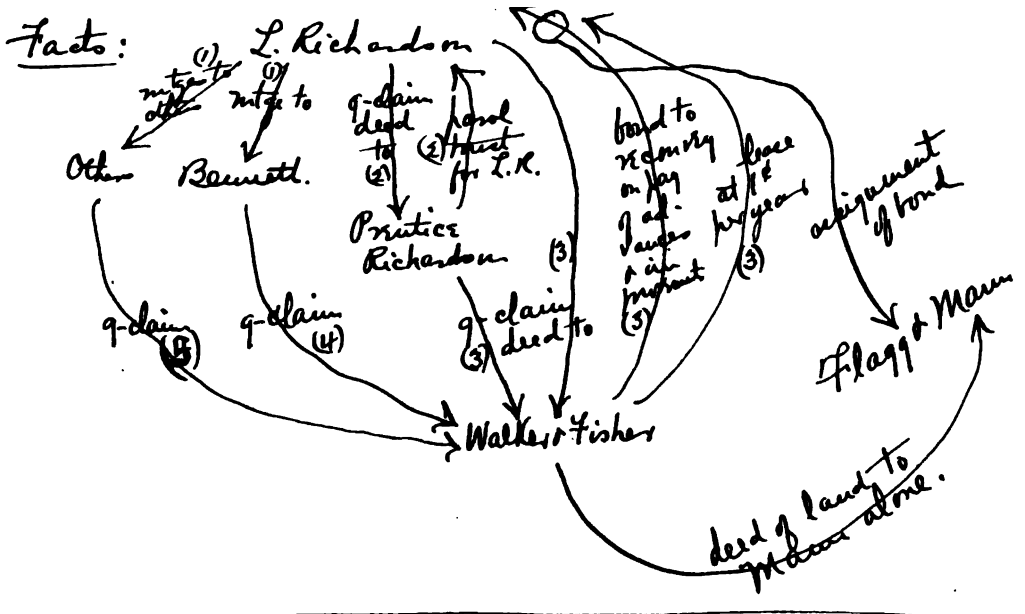 Facts:
L. Richardson
(1)
mtge to
others
(1)
mtge to
q-claim
deed
to
(2)
(2)
parol
trust
for L.R.
Others
Bennett.
Prentice
Richardson
(3)
bond to
reconvey
on pay
of ad-
vances
(3)
lease
at 1¢
per year
(3)
assignment
of bond
q-claim
q-claim
(4)
q-claim
(3) deed to
Flagg & Mann
Walker & Fisher
deed of land to
Mann alone.